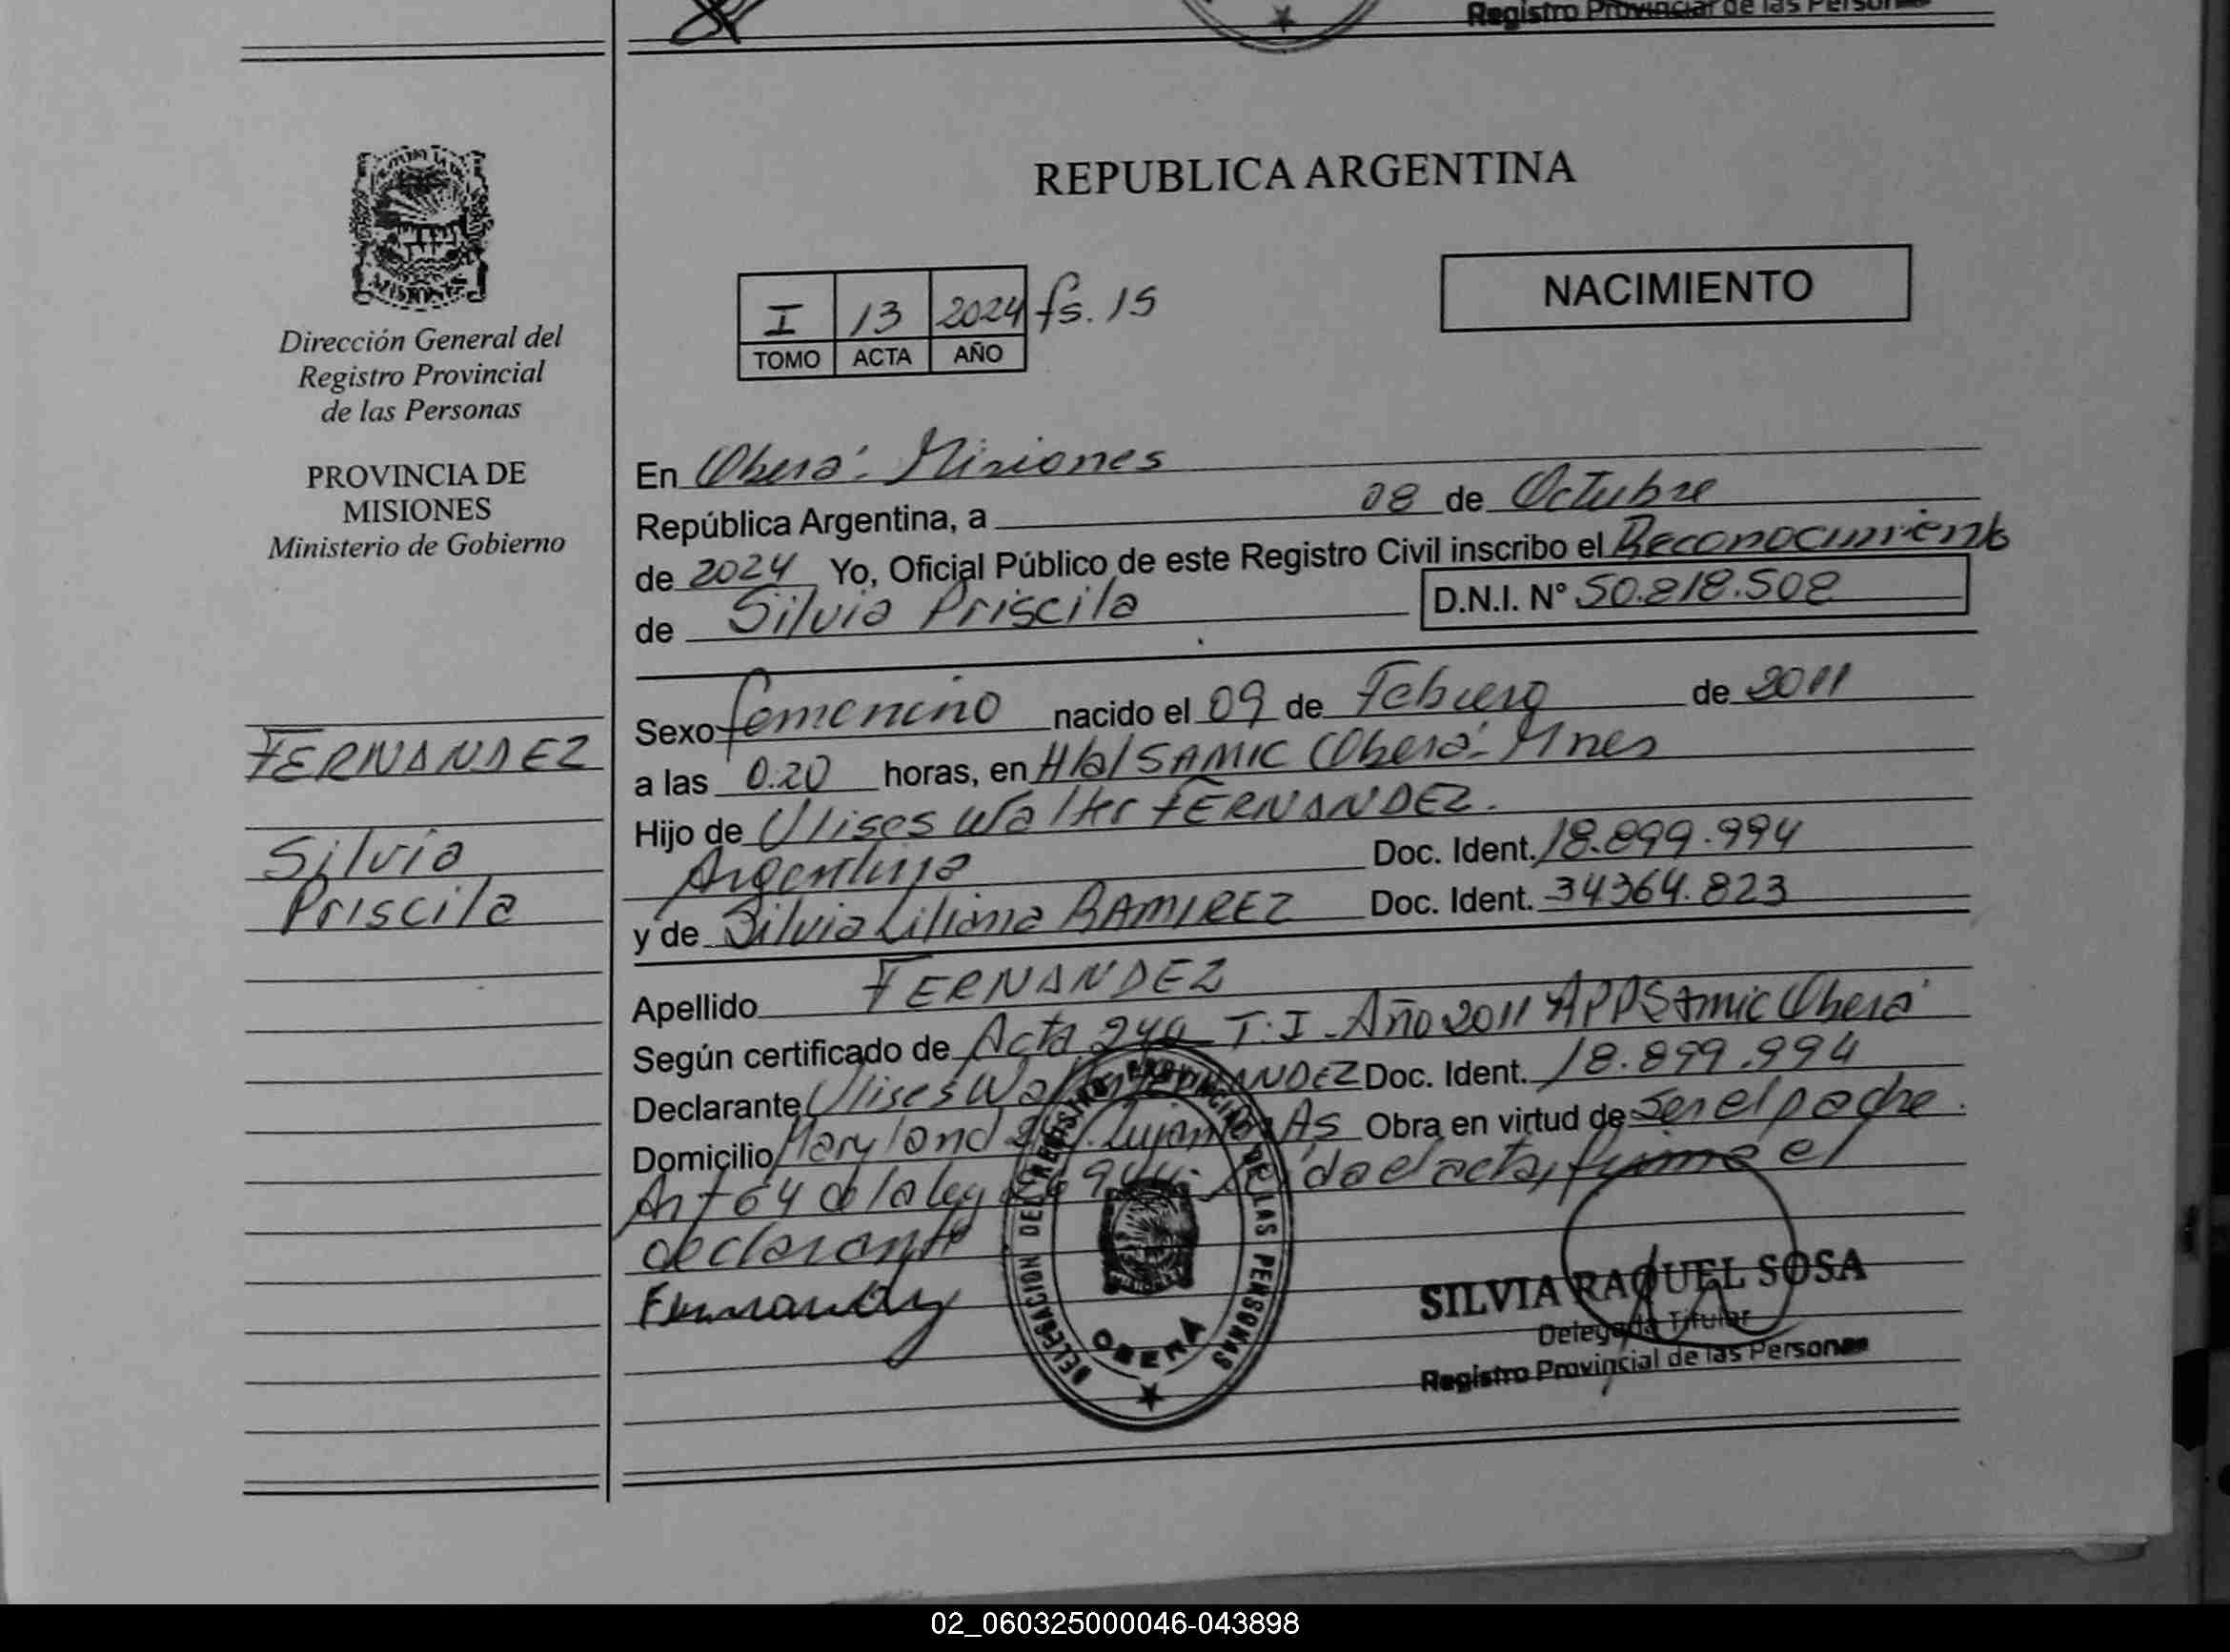 Registro Provincial de las Personas
MISIONES
Dirección General del
Registro Provincial
de las Personas
PROVINCIA DE
MISIONES
Ministerio de Gobierno
FERNANDEZ
Silvia
Priscila
REPUBLICA ARGENTINA
NACIMIENTO
I 13 2024 fs. 15
TOMO ACTA AÑO
En Oberá - Misiones
República Argentina, a 08 de Octubre
de 2024 Yo, Oficial Público de este Registro Civil inscribo el Reconocimiento
de Silvia Priscila D.N.I. N° 50.818.508
Sexo femenino nacido el 09 de Febrero de 2011
a las 0.20 horas, en SAMIC Oberá - Mnes
Hijo de Ulises Walter FERNANDEZ.
Argentina Doc. Ident. 18.899.994
y de Silvia Liliana RAMIREZ Doc. Ident. 34364.823
Apellido FERNANDEZ
Según certificado de Acta T: I - Año 2011 Samic Oberá
Declarante Ulises Walter FERNANDEZ Doc. Ident. 18.899.994
Domicilio Maryland As Obra en virtud de Ser el padre.
Art 64 de la ley Leída el acta, firma el
declarante
DELEGACION DEL REGISTRO PROVINCIAL DE LAS PERSONAS
OBERÁ
SILVIA RAQUEL SOSA
Delegada Titular
Registro Provincial de las Personas
02_060325000046-043898